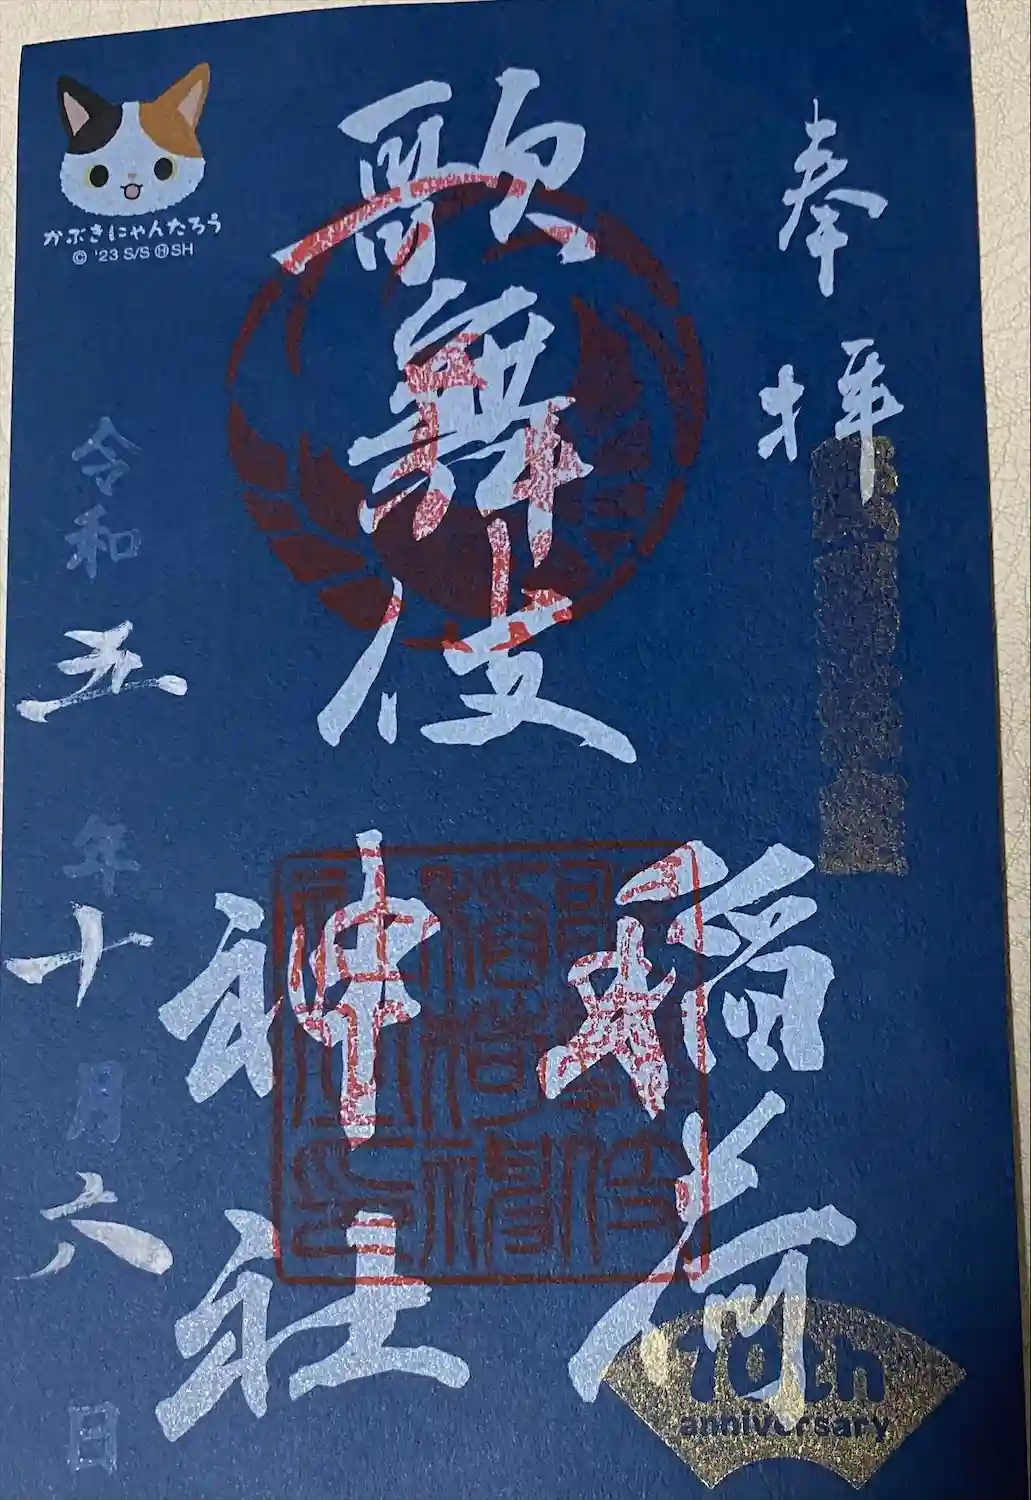 奉拝
歌舞伎
稲荷
神社
令和五年十月六日
かぶきにゃんたろう
© '23 S/S Ⓗ SH
10th
anniversary